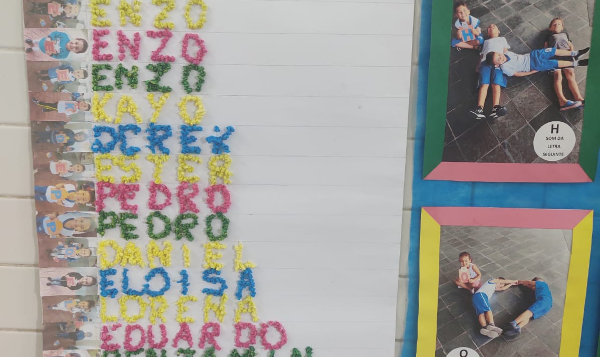 ENZO
ENZO
ENZO
KAYO
ESTER
PEDRO
PEDRO
DANIEL
ELOISA
LORENA
EDUARDO
H
SOM DA
LETRA
SEGUINTE